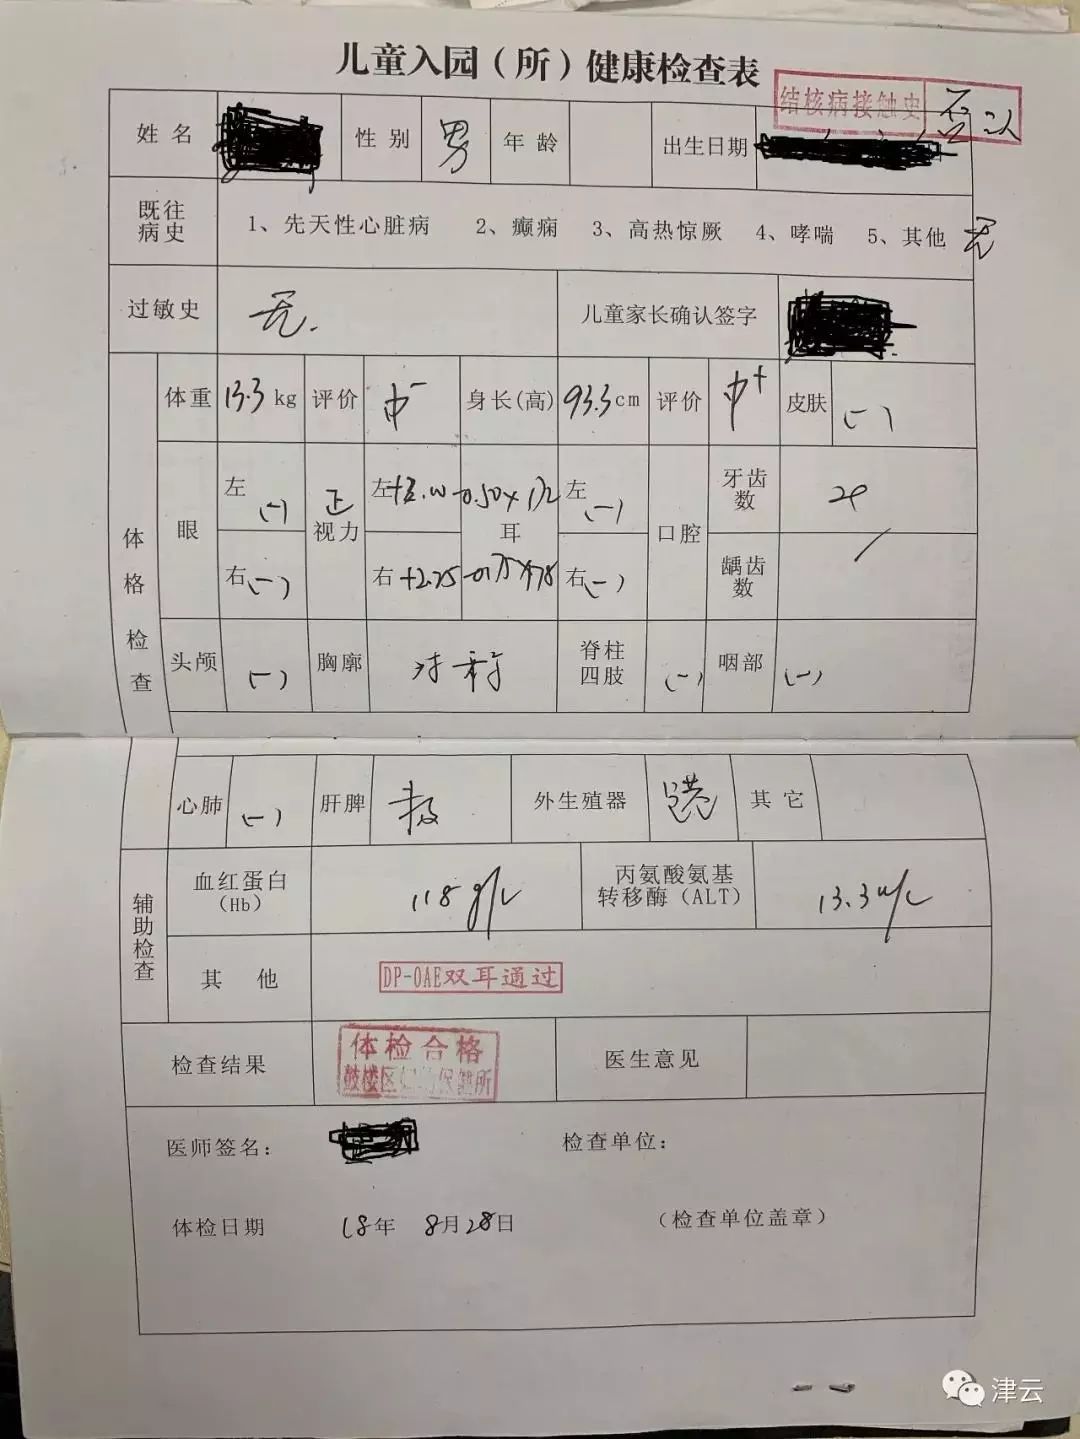 儿童入园（所）健康检查表
结核病接触史 否认
姓名 性别 男 年龄 出生日期
既往病史 1、先天性心脏病 2、癫痫 3、高热惊厥 4、哮喘 5、其他 无
过敏史 无. 儿童家长确认签字
体格检查
体重 13.3 kg 评价 中- 身长(高) 93.3 cm 评价 中+ 皮肤 (-)
眼 左 (-) 右 (-)
视力 正 左 右 +2.75
耳 左 (-) 右 (-)
口腔 牙齿数 龋齿数 /
头颅 (-) 胸廓 对称 脊柱四肢 (-) 咽部 (-)
心肺 (-) 肝脾 外生殖器 其它
辅助检查
血红蛋白（Hb） 118 g/L 丙氨酸氨基转移酶（ALT） 13.3 u/L
其他 DP-OAE双耳通过
检查结果 体检合格 医生意见
鼓楼区 保健所
医师签名： 检查单位：
体检日期 18年 8月28日 （检查单位盖章）
津云